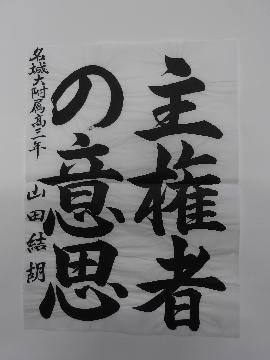 主権者
の意思
名城大附属高三年 山田結胡